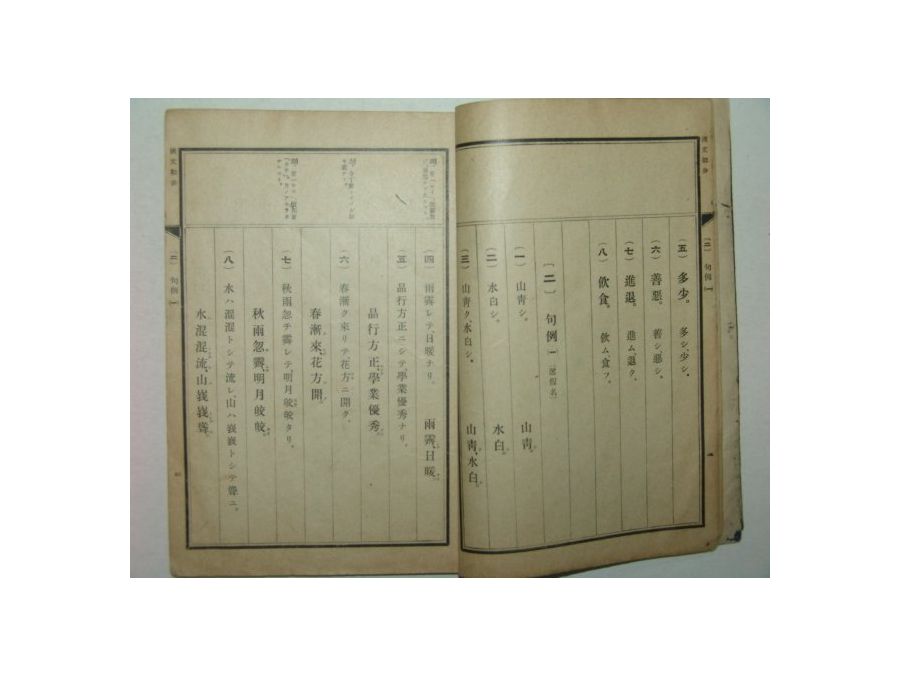 (五) 多少。 多シ、少シ。
(六) 善惡。 善シ、惡シ。
(七) 進退。 進ム、退ク。
(八) 飮食。 飮ム、食フ。
〔二〕 句例 一
(一) 山靑シ。 山靑。
(二) 水白シ。 水白。
(三) 山靑ク、水白シ。 山靑、水白。
〔二〕 句例 一
(四) 雨霽レテ、日暖ナリ。 雨霽、日暖。
(五) 品行方正ニシテ、學業優秀ナリ。
品行方正、學業優秀。
(六) 春漸ク來リテ、花方ニ開ク。
春漸來、花方開。
(七) 秋雨忽チ霽レテ、明月皎皎タリ。
秋雨忽霽、明月皎皎。
(八) 水ハ混混トシテ流レ、山ハ峩峩トシテ聳ユ。
水混混流、山峩峩聳。
〔二〕 句例 一